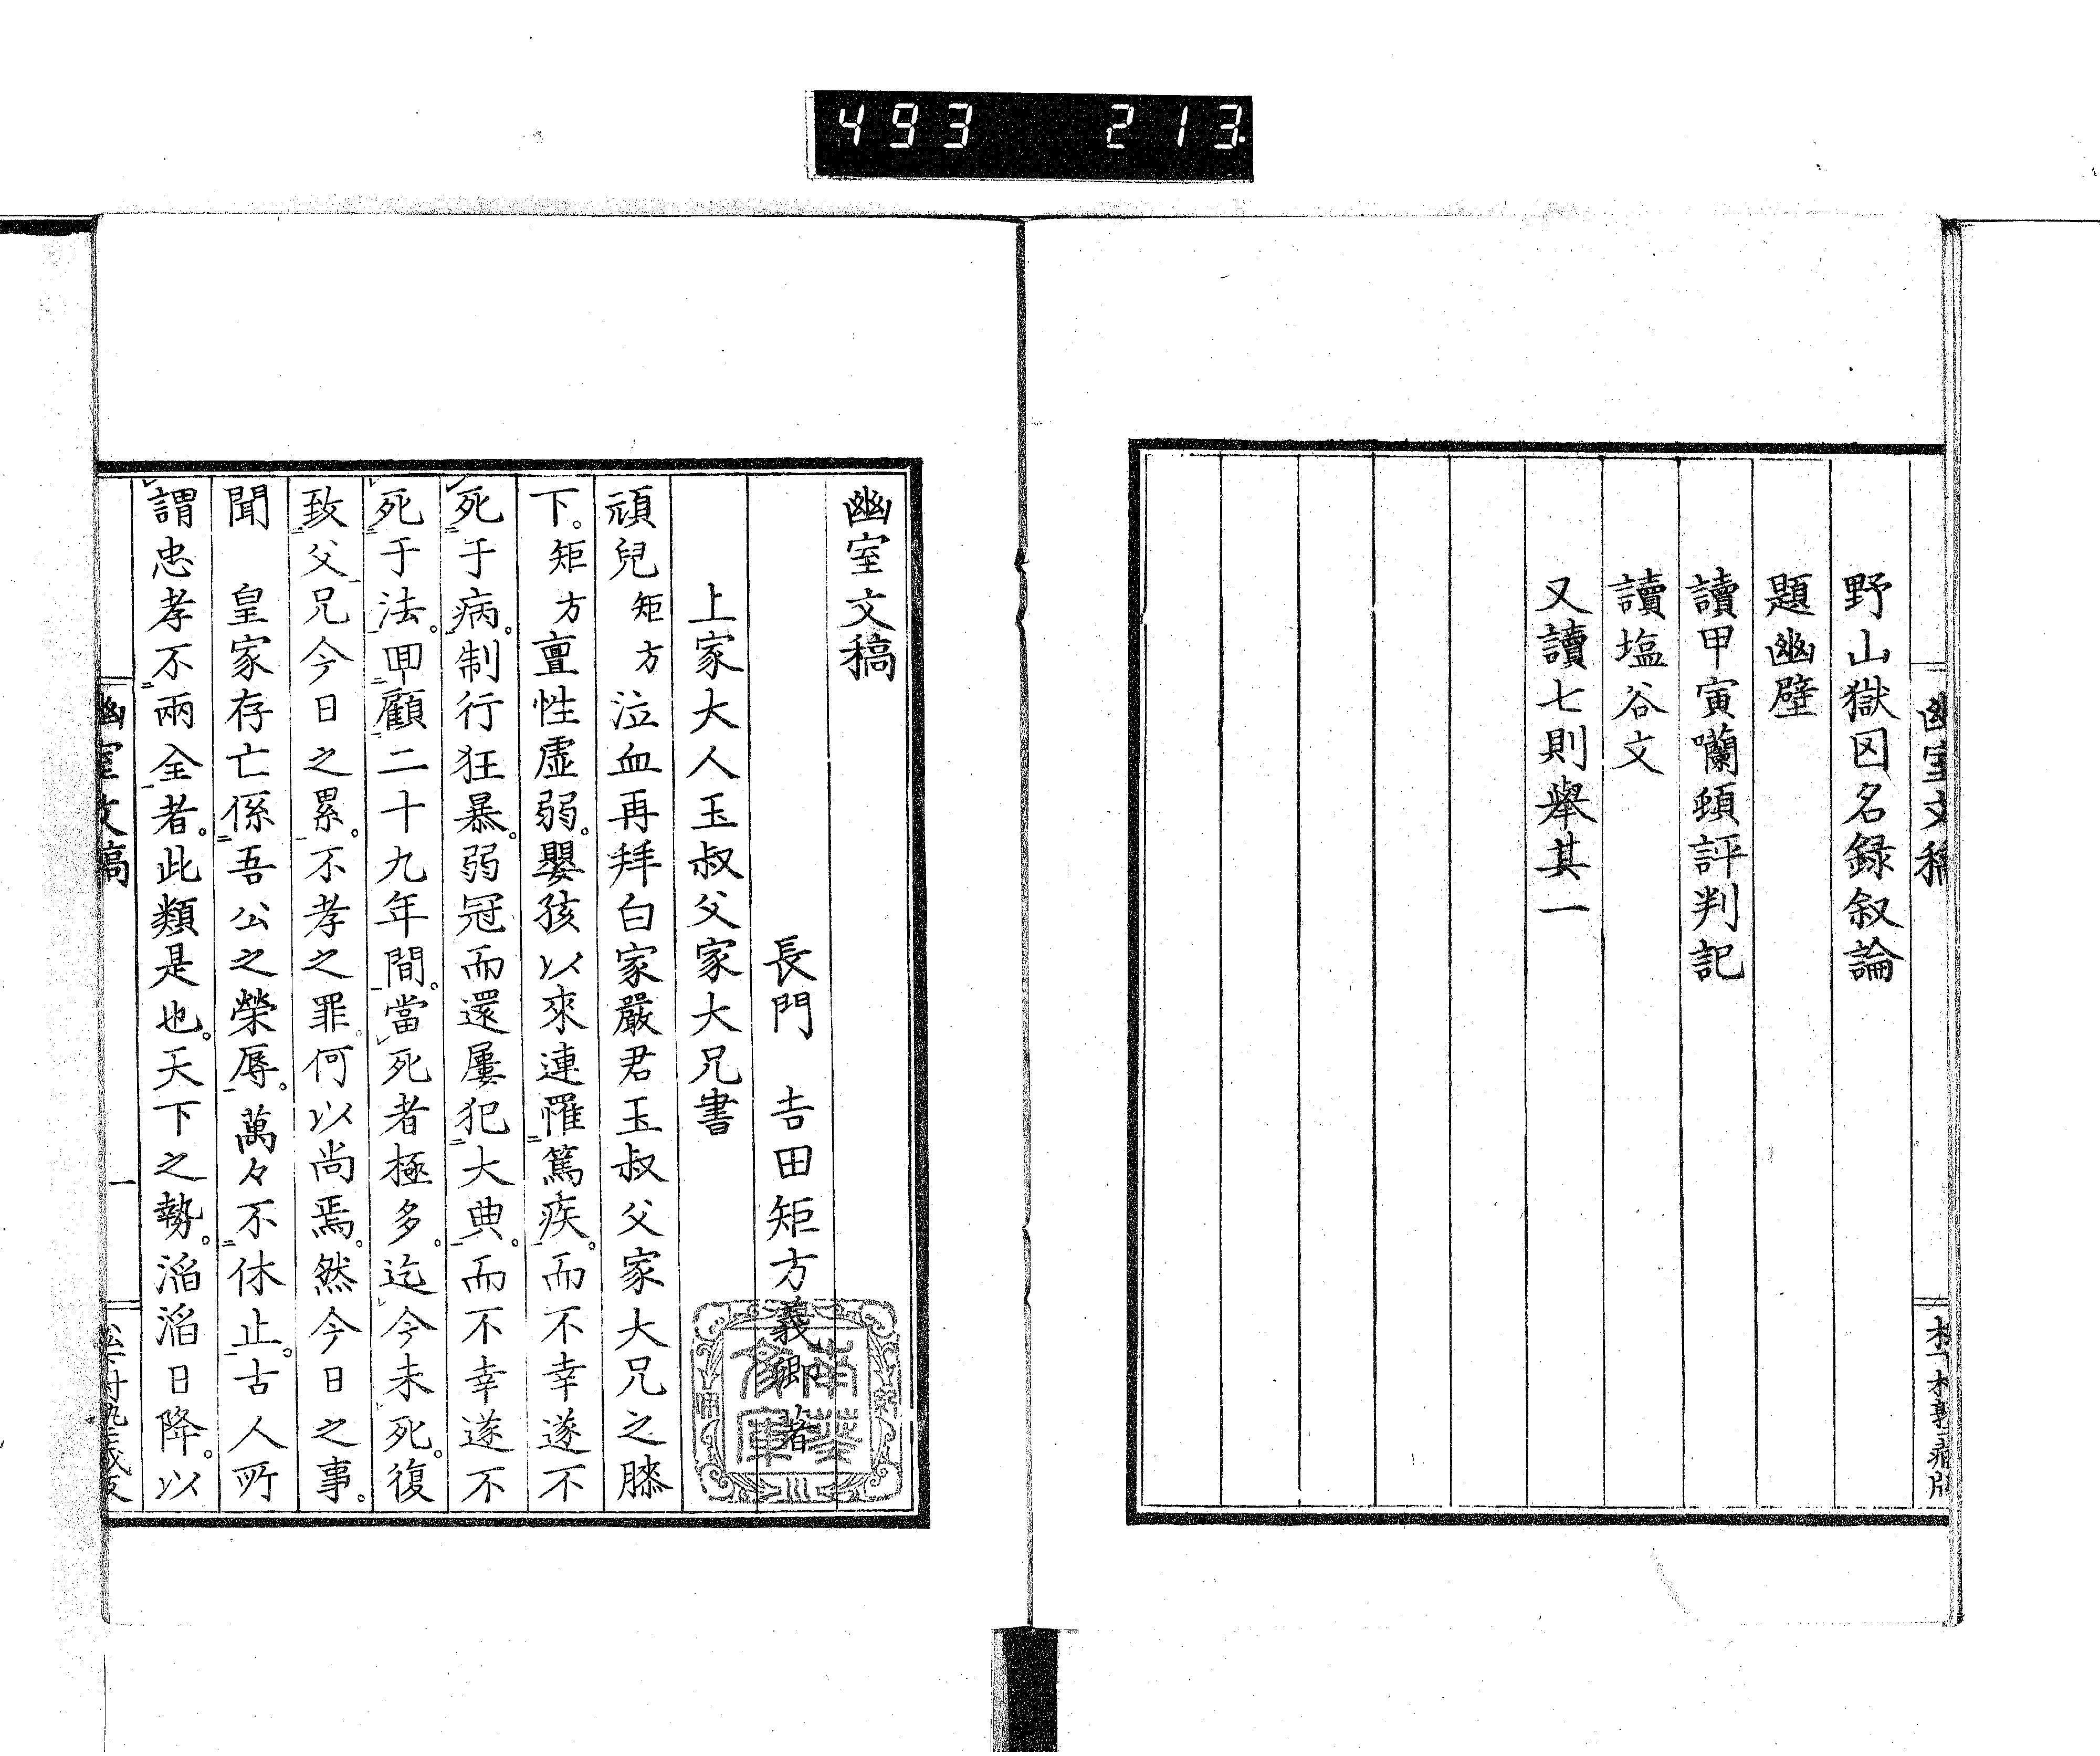 493 213
幽室文稿
野山獄囚名録叙論
題幽壁
讀甲寅㘓頓評判記
讀塩谷文
又讀七則舉其一
幽室文稿
長門 吉田矩方義卿著
上家大人玉叔父家大兄書
頑兒矩方泣血再拜白家嚴君玉叔父家大兄之膝
下。矩方亶性虛弱。嬰孩以來連罹篤疾。而不幸遂不
死于病。制行狂暴。弱冠而還屢犯大典。而不幸遂不
死于法。回顧二十九年間。當死者極多。迄今未死。復
致父兄今日之累。不孝之罪。何以尚焉。然今日之事。
聞 皇家存亡係吾公之榮辱。萬々不休止。古人所
謂忠孝不兩全者。此類是也。天下之勢。滔滔日降。以
幽室文稿
一